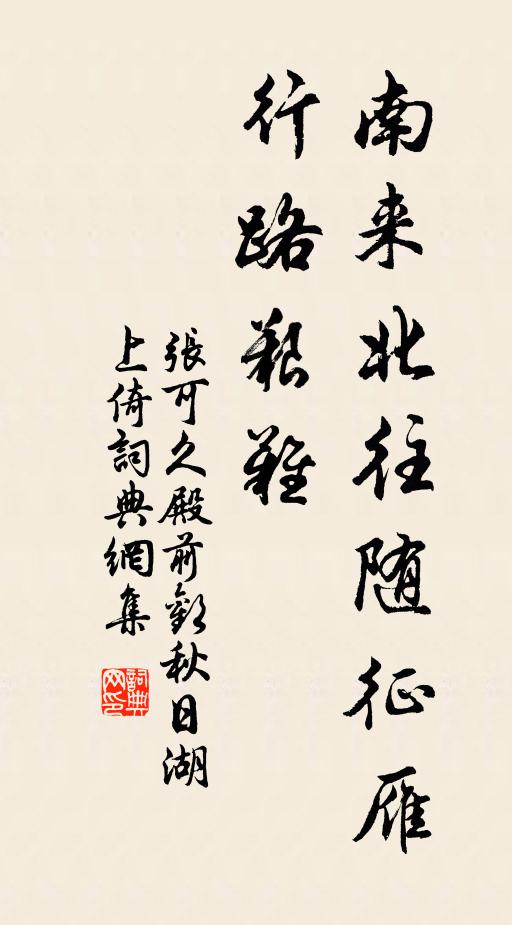 南来北往随征雁
行路艱難
張可久殿前歡秋日湖
上倚詞典網集
詞典網印